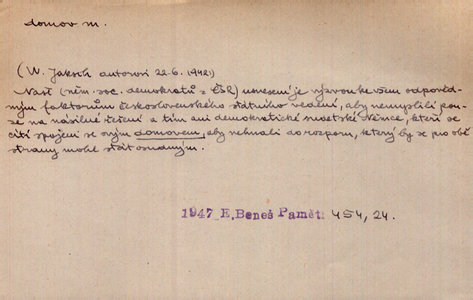 domov m.
(W. Jaksch autorovi 22.6.1942)
Naší (něm. soc. demokratů z ČSR) usnesení je výzvou ke všem odpověd-
ným faktorům československého státního vedení, aby nemyslili pou-
ze na násilné řešení a tím ani demokratické sudetské Němce, kteří se
cítí spojeni se svým domovem, aby nehnali do rozporu, který by se pro obě
strany mohl stát osudným.
1947 E. Beneš Paměti 454, 24.